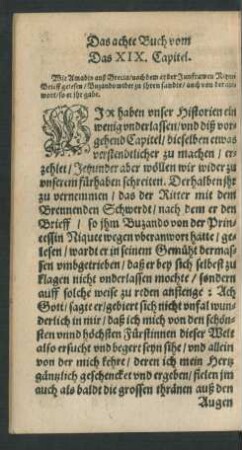 Das achte Buch vom
Das XIX. Capitel.
Wie Amadis auß Grecia / nach dem er der Junfrawen Niquee
Brieff gelesen / Buzando wider zu ihren sandte / auch von der ant
wort / so er ihr gabe.
WIR haben vnser Historien ein
wenig vnderlassen / vnd diß vor-
gehend Capitel / dieselben etwas
verstendtlicher zu machen / er-
zehlet / Jetzunder aber wöllen wir wider zu
vnserem fürhaben schreiten. Derhalben ihr
zu vernemmen / das der Ritter mit dem
Brennenden Schwerdt / nach dem er den
Brieff / so jhm Buzando von der Prin-
cessin Niquee wegen vberantwort hatte / ge-
lesen / ward er in seinem Gemüht dermas-
sen vmbgetrieben / daß er bey sich selbst zu
klagen nicht vnderlassen mochte / sondern
auff solche weise zu reden anfienge : Ach
Gott / sagte er / gebiert sich nicht vnfal wun-
derlich in mir / daß ich mich von den schön-
sten vnnd höchsten Fürstinnen dieser Welt
also ersucht vnd begert seyn sihe / vnd allein
von der mich kehre / deren ich mein Hertz
gäntzlich geschencket vnd ergeben / fielen jm
auch als baldt die grossen thränen auß den
Augen